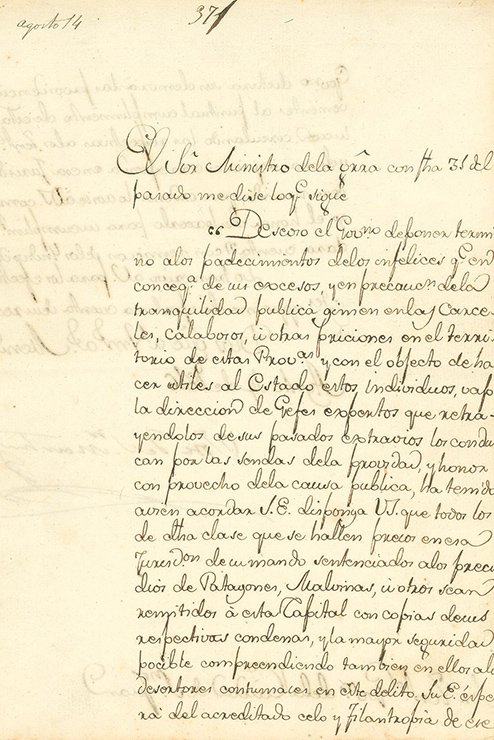 agosto 14
371
El Sōr Ministro dela grra con fħa 31 del
pasado me dise loq.e sigue
"Deseoso el Gov.no de poner termi
no alos padecimientos delos infelices q.e en
conceq.a de sus excesos, y en precauc.n dela
tranquilidad publica gimen en las Carce-
les, Calabosos, ú otras priciones en el terri-
torio de estas Prov.as y con el objeto de ha
cer utiles al Estado estos Individuos, vajo
la direccion de Gefes expertos que retra-
yendolos de sus pasados extravios los condu
can por las sendas dela providad, y honor
con provecho dela causa publica, ha tenido
avien acordar S.E. disponga V.S. que todos los
de dħa clase que se hallen presos en esa
Jurisd.on de su mando sentenciados alos preci
dios de Patagones, Malvinas, ú otros sean
remitidos à esta Capital con copias desus
respectivas condenas, y la mayor seguridad
pocible compreendiendo tambien en ellos alos
desertores contumaces en este delito. Su E. éspe
rá del acreditado celo y filantropia de ese